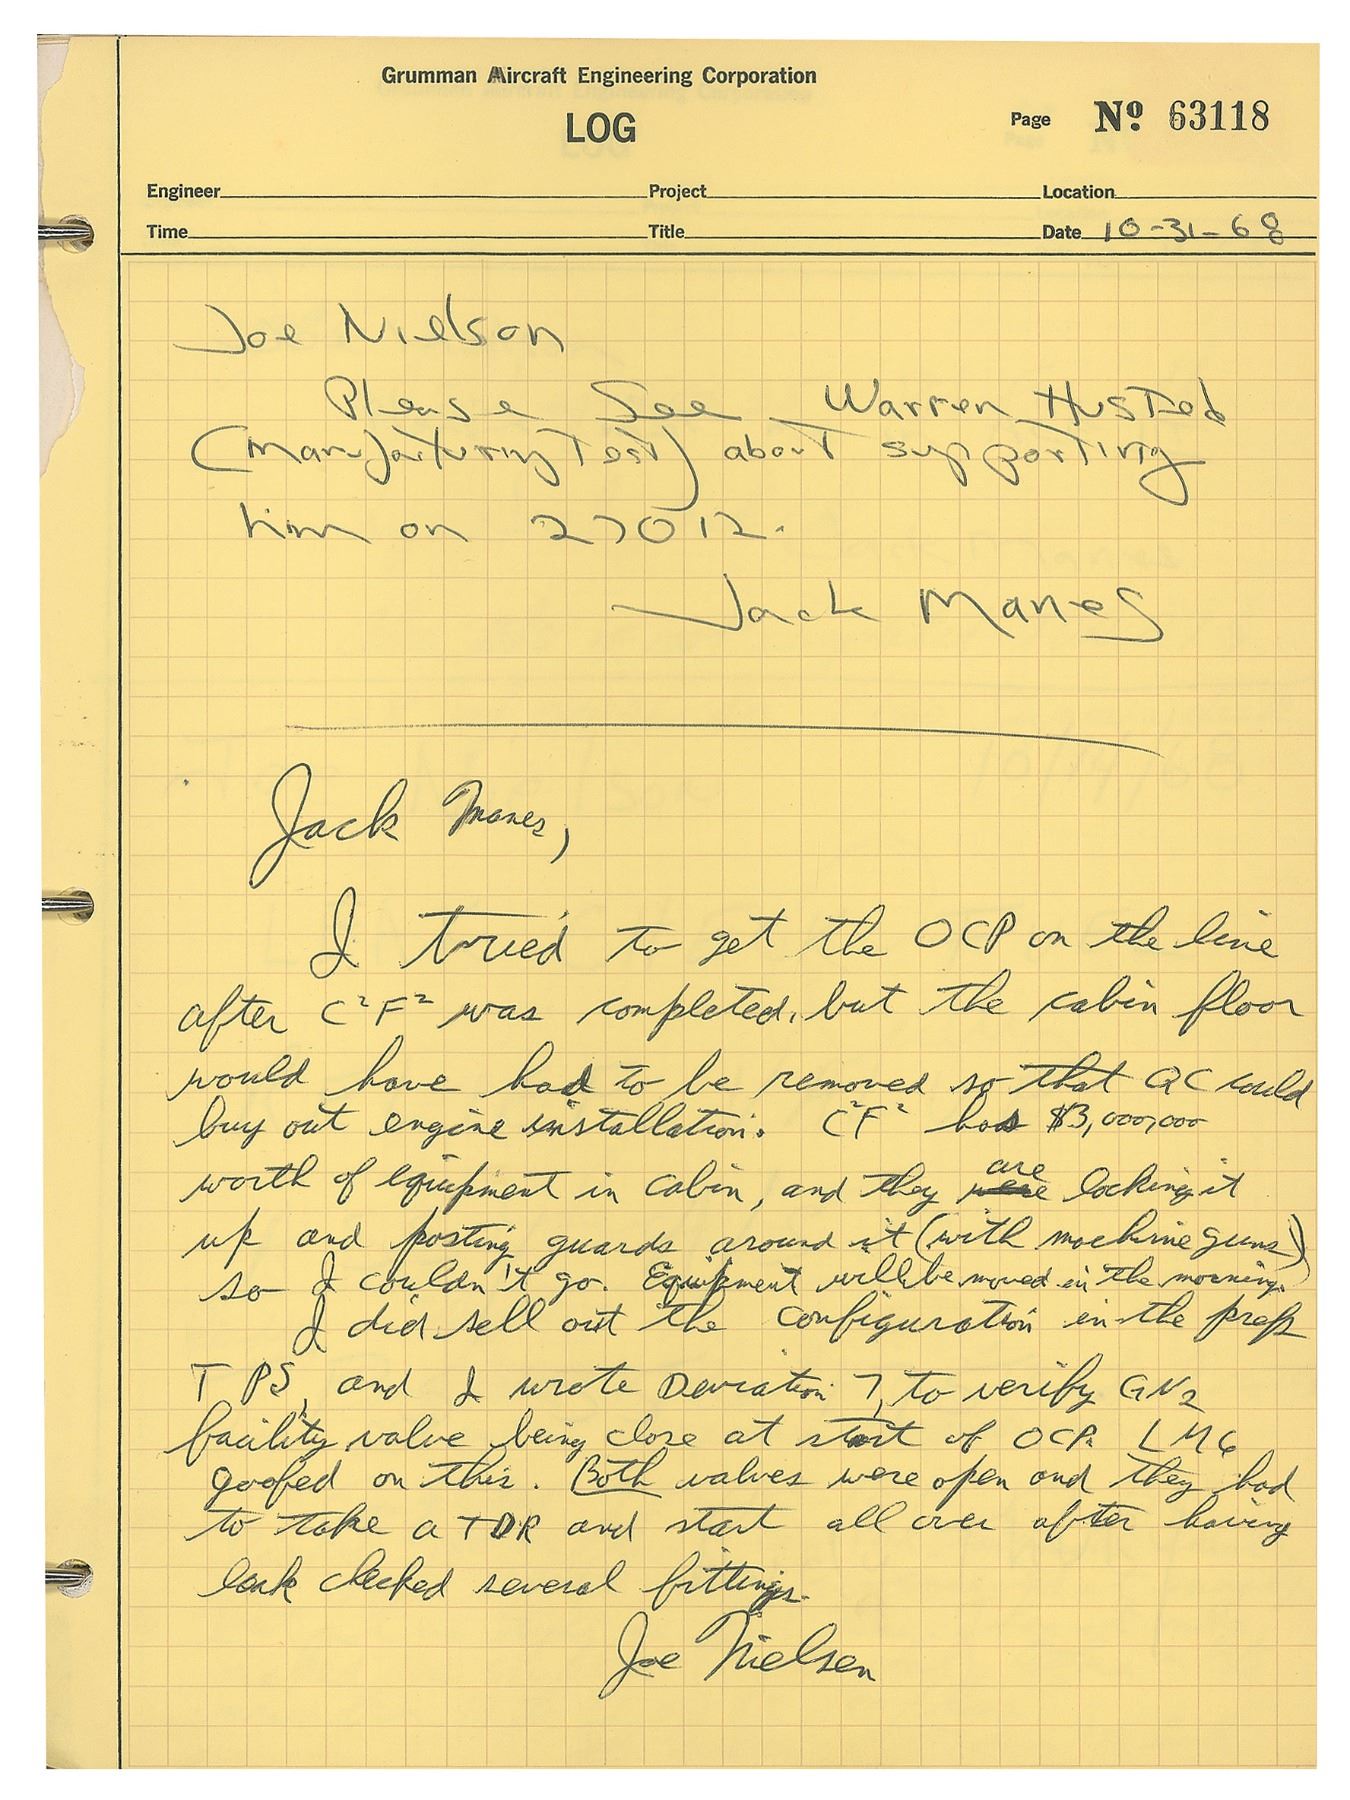 Grumman Aircraft Engineering Corporation
LOG
Page Nº 63118
Engineer Project Location
Time Title Date 10-31-68
Joe Nielson
Please See Warren Husted
(Manufacturing Test) about supporting
him on 27012.
Jack Manes
Jack Manes,
I tried to get the OCP on the line
after C²F² was completed, but the cabin floor
would have had to be removed so that QC could
buy out engine installation. C²F² has $3,000,000
worth of equipment in cabin, and they are locking it
up and posting guards around it (with machine guns)
so I couldn't go. Equipment will be moved in the morning.
I did sell out the configuration in the prep
TPS, and I wrote Deviation 7, to verify GN2
facility valve being close at start of OCP. LM6
goofed on this. Both valves were open and they had
to take a TDR and start all over after having
leak checked several fittings.
Joe Nielsen